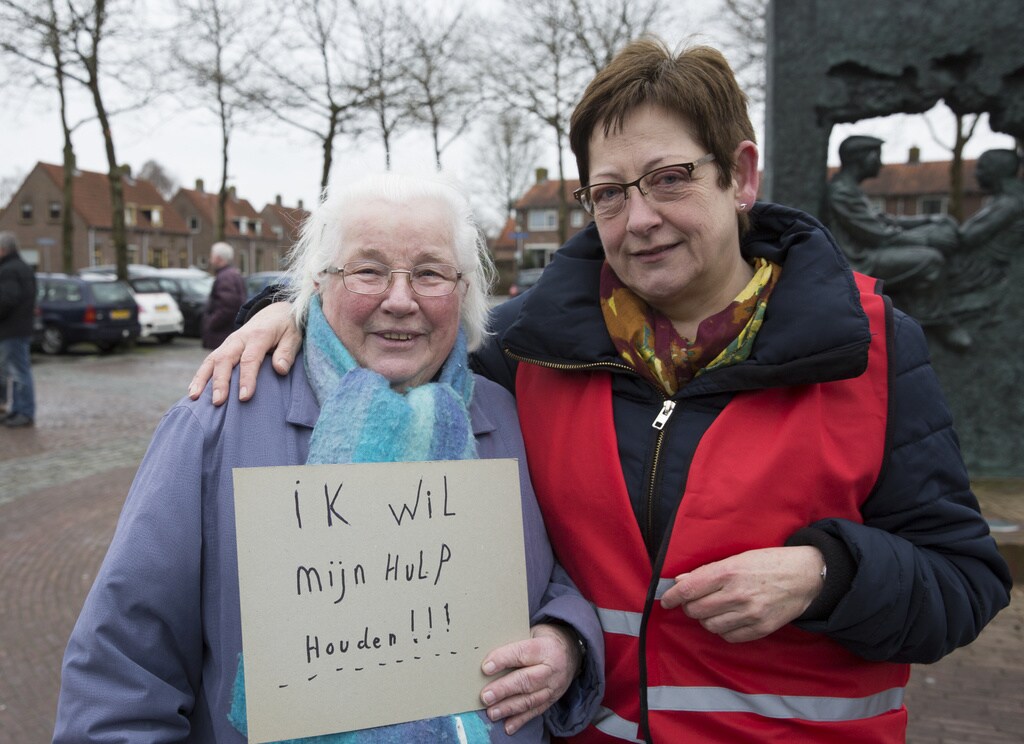 iK WiL
Mijn HuLP
Houden!!!